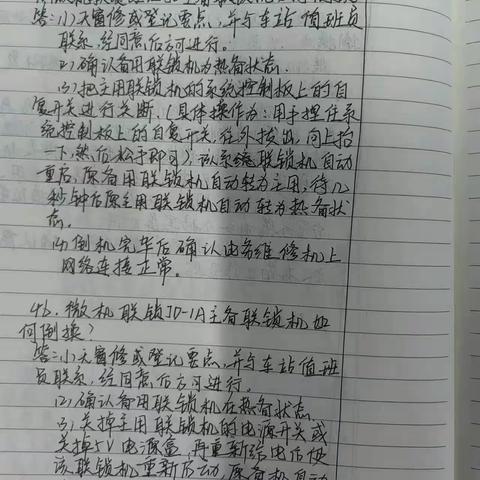 答：(1)天窗修或登记要点，并与车站值班员
联系，经同意后方可进行。
(2)确认备用联锁机为热备状态。
(3)把主用联锁机的系统控制板上的自
复开关进行关断。（具体操作为：用手捏住系
统控制板上的自复开关，往外拔出，向上抬
一下，然后松手即可）该系统联锁机自动
重启，原备用联锁机自动转为主用，待几
秒钟后原主用联锁机自动转为热备状
态。
(4)倒机完毕后确认电务维修机上
网络连接正常。
46.微机联锁JD-1A主备联锁机如
何倒换？
答：(1)天窗修或登记要点，并与车站值班
员联系，经同意后方可进行。
(2)确认备用联锁机在热备状态。
(3)关掉主用联锁机的电源开关或
关掉5V电源盒，再重新给电后使
该联锁机重新启动，原备机自动